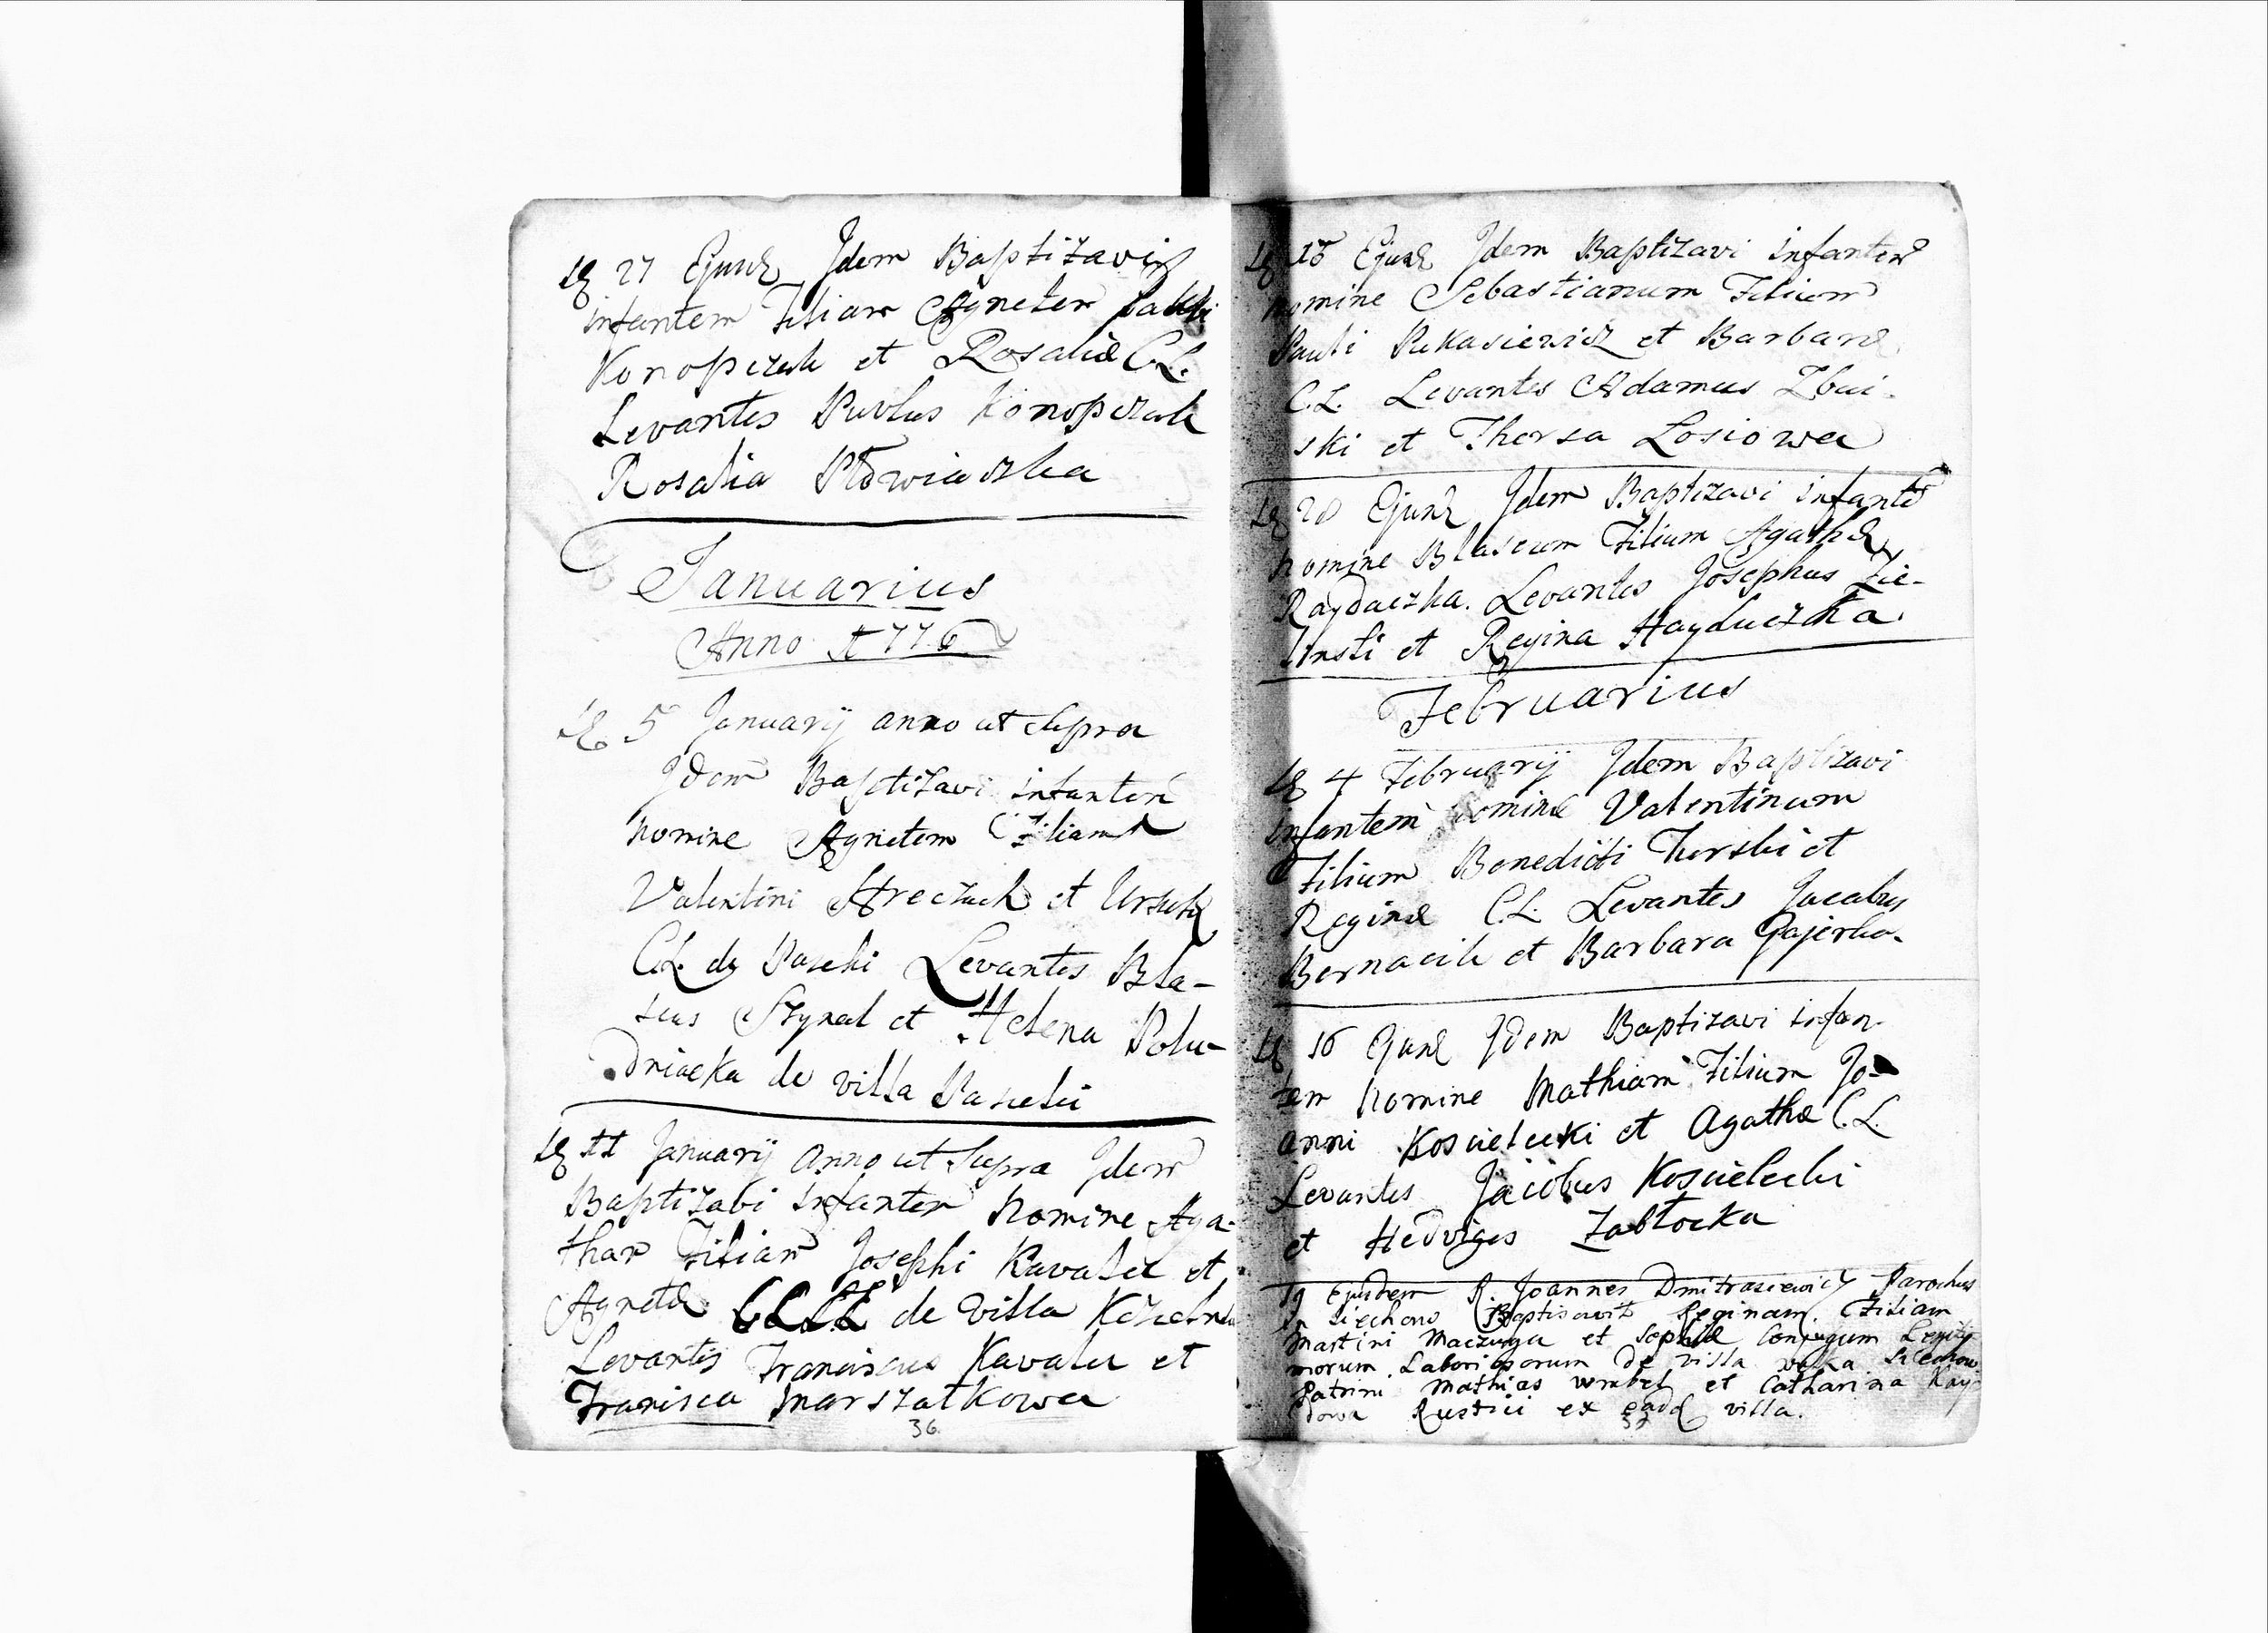 27 Ejusd Idem Baptizavi
infantem Filiam Agnetem
Konopczak et Rosaliæ C.L.
Levantes Pavlus Konopczak
Rosalia
Januarius
Anno 1776
5 January anno ut Supra
Idem Baptizavi infantem
nomine Agnetem Filiam
Valentini et Ursulæ
C.L. de Paseki Levantes Bla-
sius et Helena Polu-
dniacka de villa Paseki
11 January Anno ut Supra Idem
Baptizabi infantem Nomine Aga-
tham Filiam Josephi Kavalec et
Agnetæ de Villa
Levantes Franciscus Kavalec et
Francisca Marszałkowa
36.
Ejusd Idem Baptizavi infantem
nomine Sebastianum Filium
Pauli et Barbaræ
C.L. Levantes Adamus Zbui-
ski et Thersa Łosiowa
20 Ejusd Idem Baptizavi infante
Nomine Blasium Filium Agathæ
Levantes Josephus Zie-
linski et Regina Hayduczka
Februarius
4 February Idem Baptizavi
infantem nomine Valentinum
Filium Benedicti Turski et
Reginæ C.L. Levantes Jacobus
Bernacik et Barbara
16 Ejusd Idem Baptizavi infan
tem Nomine Mathiam Filium Jo-
anni Koscielecki et Agathæ C.L.
Levantes Jacobus Koscielecki
et Hedviges Zabłocka
19 Ejusdem R. Joannes Dmitrasiewicz Parochus
Baptisavit Reginam Filiam
Martini Maczuga et Sophiæ Conjugum Legity
morum Laboriosorum De villa wolka
Patrini Mathias wrubel et Catharina Kay-
dowa Rustici ex eadd villa.
37